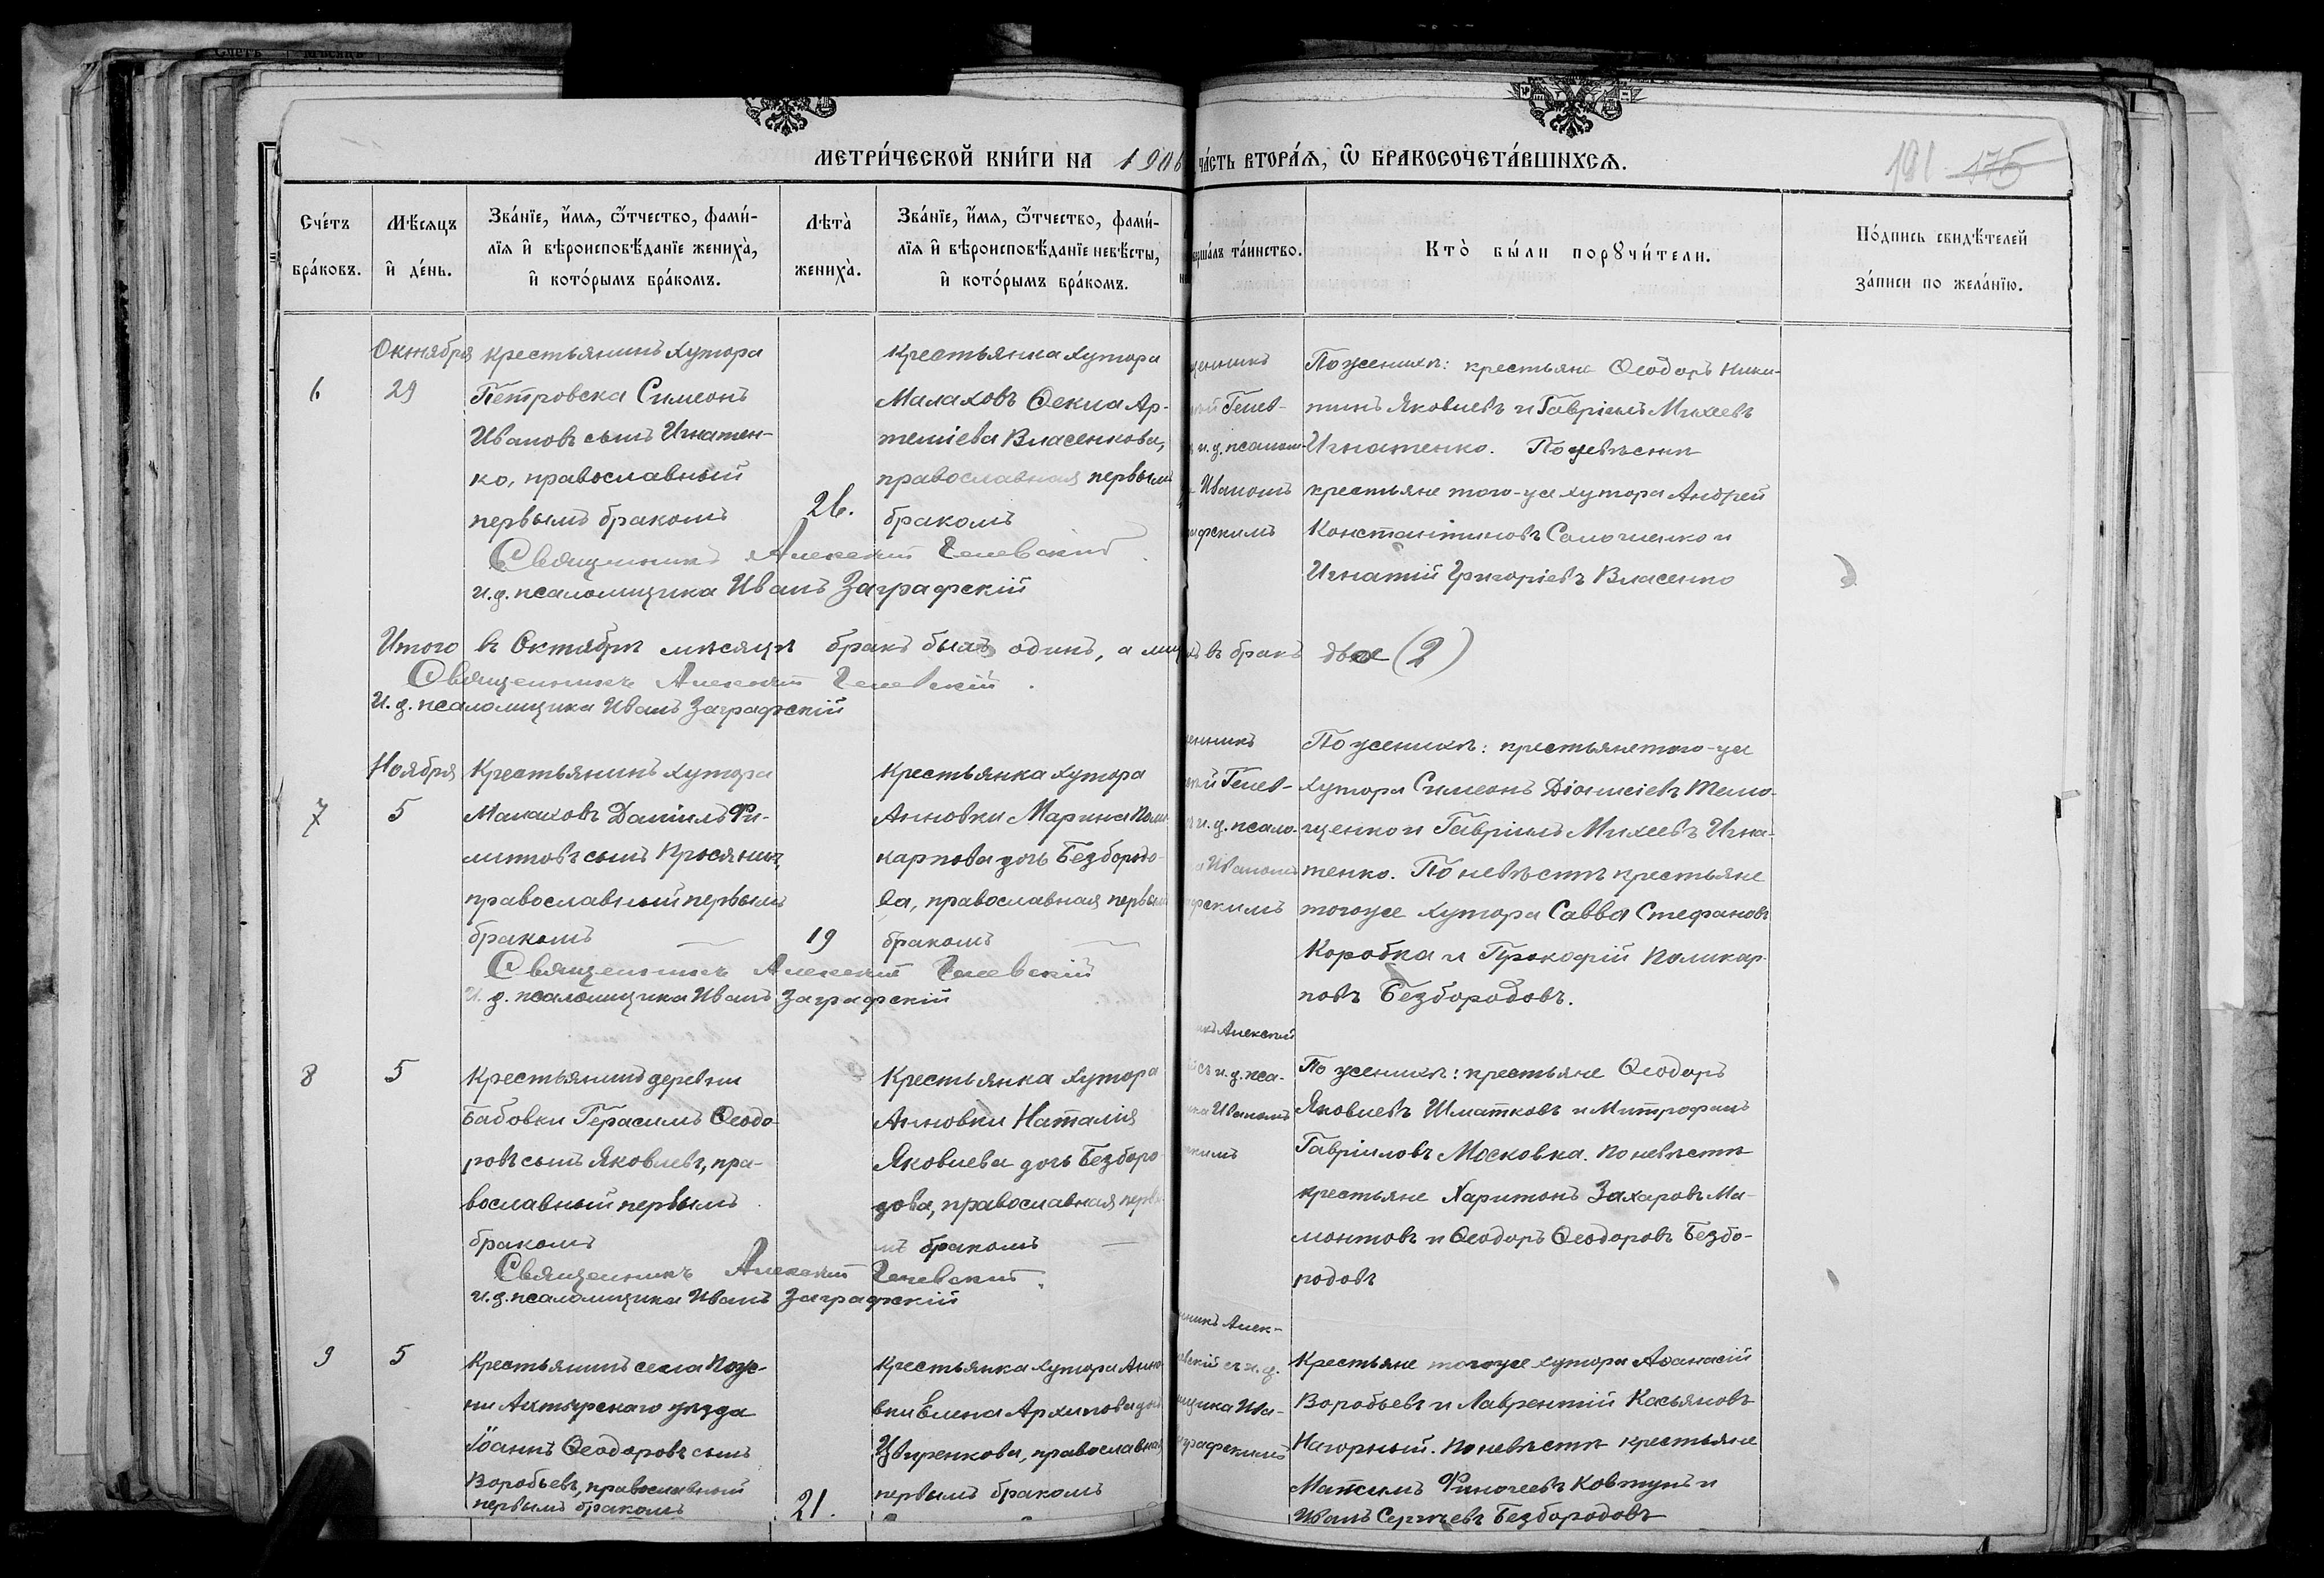 МЕТРИ́ЧЕСКОЙ КНИ́ГИ НА 1906
ЧА́СТЬ ВТОРА́Ѧ, Ѿ БРАКОСОЧЕТА́ВШИХСѦ.
191 175
Сче́тъ бра́ковъ.
Мѣ́сяцъ и҆ де́нь.
Зва́нїе, и҆́мѧ, ѻ҆́тчество, фами́-
лїѧ и҆ вѣроисповѣ́данїе жениха̀,
и҆ кото́рымъ бра́комъ.
Лѣта̀ жениха̀.
Зва́нїе, и҆́мѧ, ѻ҆́тчество, фами́-
лїѧ и҆ вѣроисповѣ́данїе невѣ́сты,
и҆ кото́рымъ бра́комъ.
верша́лъ та́инство.
Кто̀ бы́ли порꙋчи́тели.
По́дпись свидѣ́телей
за́писи по жела́нїю.
6
Октября
29
Крестьянинъ хутора
Петровска Симеонъ
Ивановъ сынъ Игнатен-
ко, православный
первымъ бракомъ
26.
Крестьянка хутора
Малаховъ Ѳекла Ар-
теміева Власенкова,
православная первымъ
бракомъ
щенникъ
Гелев-
и.д. псалом-
Иваномъ
графскимъ
По женихѣ: крестьяне Ѳеодоръ Ники-
тинъ Яковлевъ и Гавріилъ Михеевъ
Игнатенко. По невѣстѣ
крестьяне того-же хутора Андрей
Константиновъ и
Игнатій Григоріевъ Власенко
Священникъ Алексій Гелевскій
и.д. псаломщика Иванъ Заграфскій
Итого въ Октябрѣ мѣсяцѣ бракъ былъ одинъ, а лицъ въ бракѣ два (2)
Священникъ Алексій Гелевскій.
И.д. псаломщика Иванъ Заграфскій
7
Ноября
5
Крестьянинъ хутора
Малаховъ Даніилъ Фи-
липповъ сынъ Просянинъ,
православный первымъ
бракомъ
19
Крестьянка хутора
Анновки Марина Поли-
карпова дочь Безбородо-
ва, православная первымъ
бракомъ
щенникъ
Гелев-
и.д. псало-
Иваномъ
графскимъ
По женихѣ: крестьяне того-же
хутора Симеонъ Діонисіевъ Тимо-
щенко и Гавріилъ Михеевъ Игна-
тенко. По невѣстѣ крестьяне
тогоже хутора Савва Стефановъ
Коробка и Прокофій Поликар-
повъ Безбородовъ.
Священникъ Алексій Гелевскій
И.д. псаломщика Иванъ Заграфскій
8
5
Крестьянинъ деревни
Бабовки Герасимъ Ѳеодо-
ровъ сынъ Яковлевъ, пра-
вославный первымъ
бракомъ
Крестьянка хутора
Анновки Наталія
Яковлева дочь Безборо-
дова, православная первы-
мъ бракомъ
Алексій
съ и.д. пса-
Иваномъ
По женихѣ: крестьяне Ѳеодоръ
Яковлевъ Шматковъ и Митрофанъ
Гавріиловъ Московка. По невѣстѣ
крестьяне Харитонъ Захаровъ Ма-
монтовъ и Ѳеодоръ Ѳеодоровъ Безбо-
родовъ
Священникъ Алексій Гелевскій.
и.д. псаломщика Иванъ Заграфскій
9
5
Крестьянинъ села Пож-
ни Ахтырскаго уѣзда
Іоаннъ Ѳеодоровъ сынъ
Воробьевъ, православный
первымъ бракомъ
21.
Крестьянка хутора Анно-
вки Елена Архипова дочь
Цвиренкова, православная
первымъ бракомъ
Алек-
съ и.д.
щика Ива-
графскимъ
Крестьяне тогоже хутора Аѳанасій
Воробьевъ и Лаврентій Касьяновъ
Нагорный. По невѣстѣ крестьяне
Ковтунъ и
Иванъ Сергѣевъ Безбородовъ